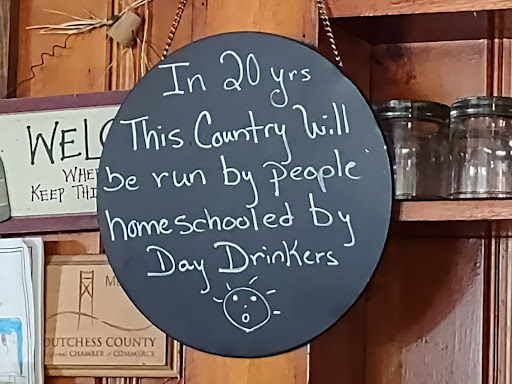 In 20 yrs
This Country Will
be run by people
homeschooled by
Day Drinkers
WELC
KEEP THI
DUTCHESS COUNTY
CHAMBER of COMMERCE